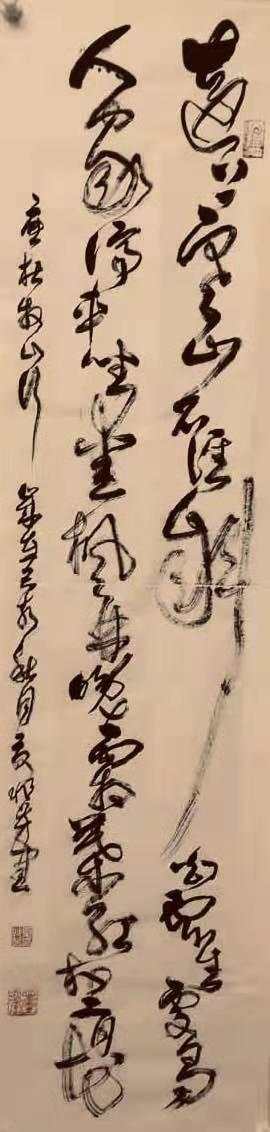 遠上寒山石徑斜白雲生處有
人家停車坐愛楓林晚霜葉紅於二月花
唐杜牧山行 秋月